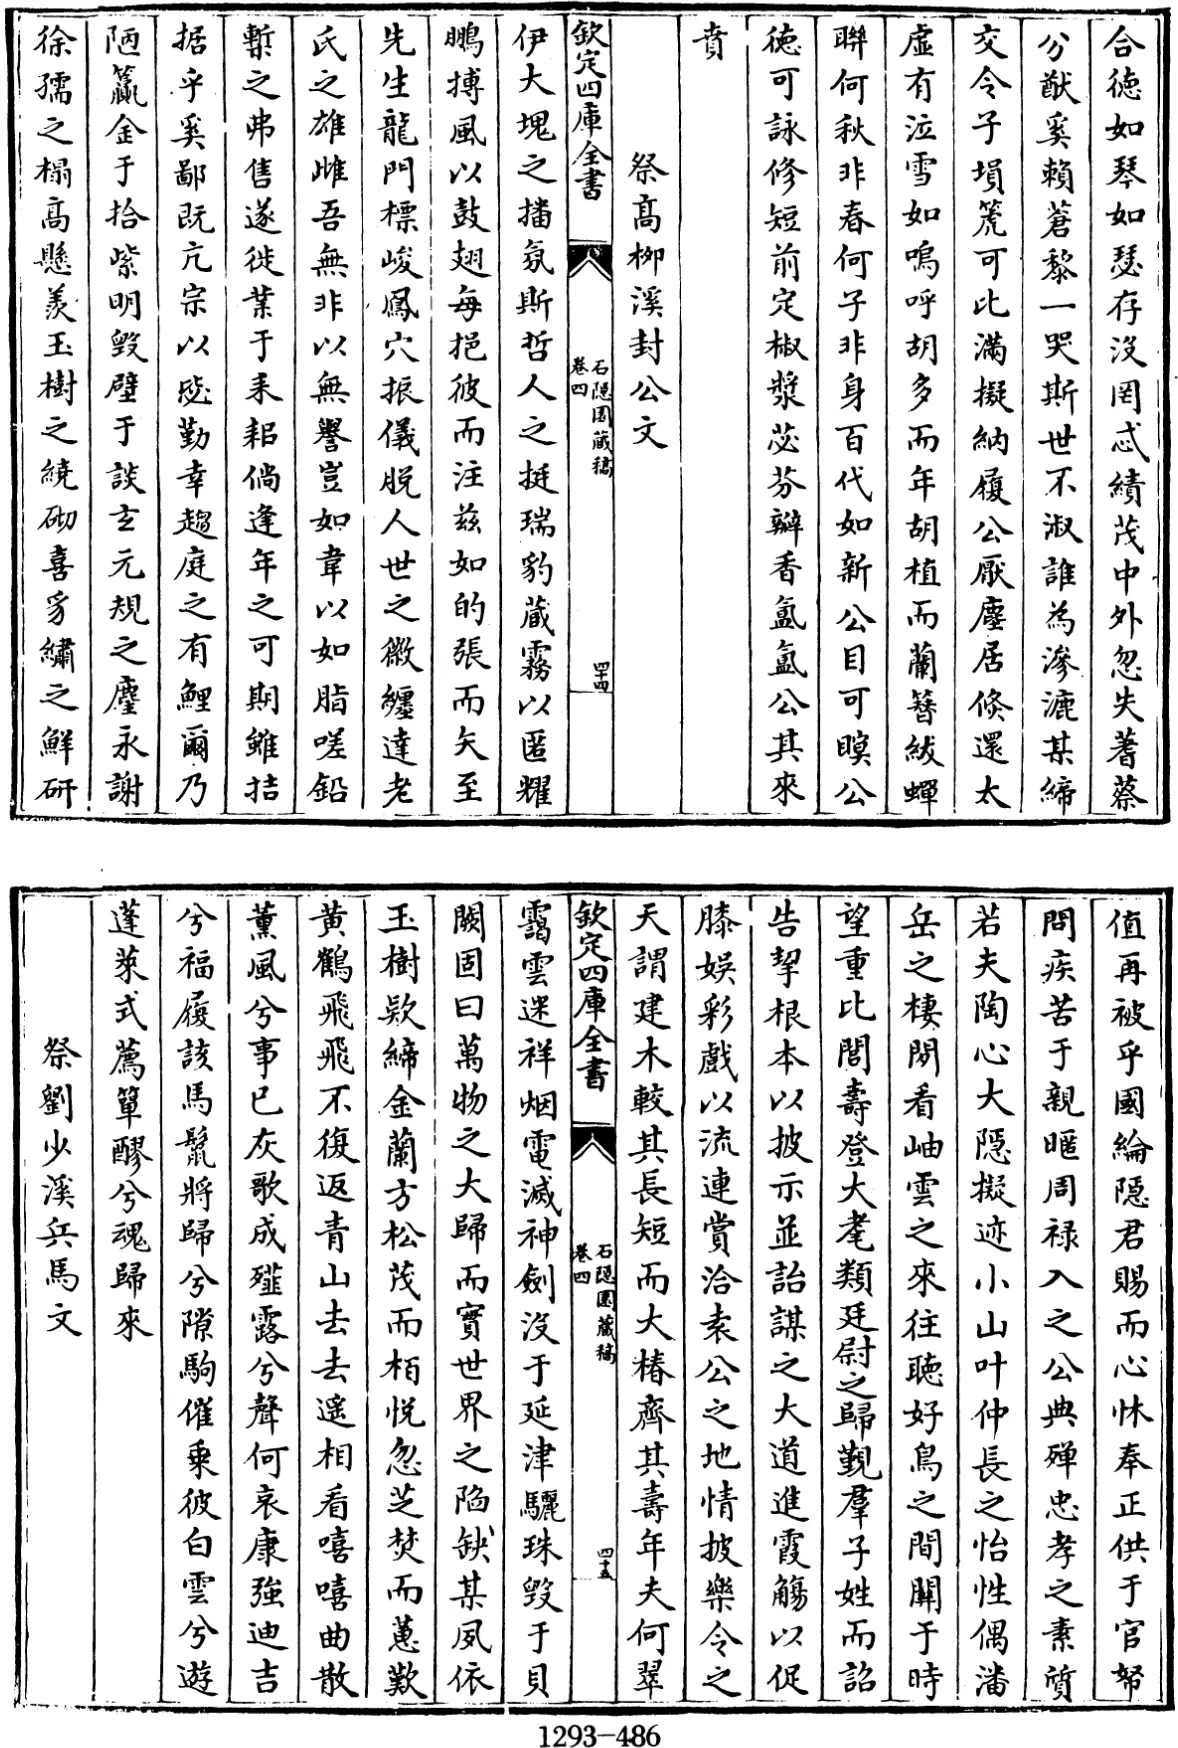 合徳如琴如瑟存沒罔忒績茂中外忽失蓍蔡
兮猷奚賴蒼黎一哭斯世不淑誰為滲漉某締
交令子塤箎可比滿擬納履公厭塵居倐還太
虛有泣雪如嗚呼胡多而年胡植而蘭簪紱蟬
聯何秋非春何子非身百代如新公目可瞑公
徳可詠修短前定椒漿苾芬辦香氳氳公其來
賁
祭髙栁溪封公文
欽定四庫全書
石隠園藏稿
卷四
四十四
伊大塊之播氛斯哲人之挺瑞豹蔵霧以匿耀
鵬摶風以鼓翅每挹彼而注兹如的張而矢至
先生龍門標峻鳳穴振儀脱人世之徽纆達老
氏之雄雌吾無非以無譽豈如韋以如脂嗟鉛
槧之弗售遂徙業于耒耜倘逢年之可期雖拮
据乎奚鄙既亢宗以毖勤幸趨庭之有鯉爾乃
陋籯金于拾紫明毀璧于談玄元規之麈永謝
徐孺之榻髙懸羨玉樹之繞砌喜豸繡之鮮研
值再被乎國綸隠君賜而心怵奉正供于官帑
問疾苦于親暱周禄入之公典殫忠孝之素質
若夫陶心大隠擬迹小山叶仲長之怡性偶潘
岳之棲閒看岫雲之來往聴好鳥之間關于時
望重比閭壽登大耄類廷尉之歸覲羣子姓而詔
告挈根本以披示並詒謀之大道進霞觴以促
膝娛彩戲以流連賞洽袁公之地情披樂令之
天謂建木較其長短而大椿齊其壽年夫何翠
欽定四庫全書
石隠園藏稿
卷四
四十五
靄雲迷祥烟電滅神劍沒于延津驪珠毀于貝
闕固曰萬物之大歸而實世界之陷缺某夙依
玉樹欵締金蘭方松茂而栢悦忽芝焚而蕙歎
黄鶴飛飛不復返青山去去遥相看嘻嘻曲散
薰風兮事已灰歌成薤露兮聲何哀康強迪吉
兮福履該馬鬛將歸兮隙駒催乗彼白雲兮遊
蓬萊式薦簞醪兮魂歸來
祭劉少溪兵馬文
1293-486